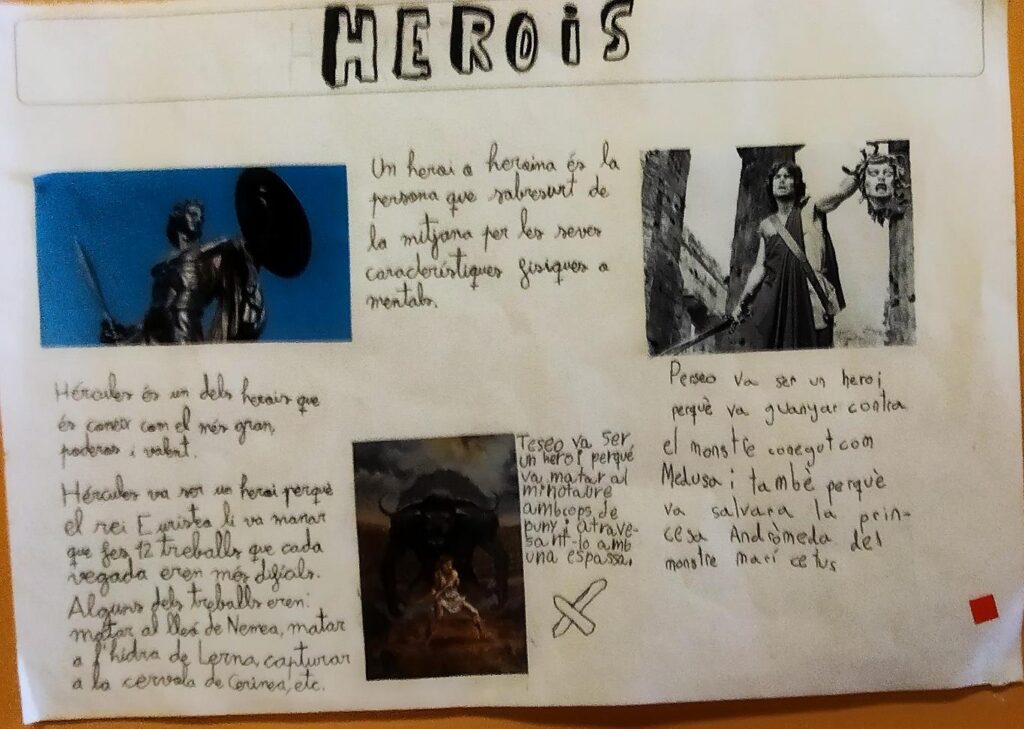 HEROIS
Un heroi o heroina és la
persona que sobresurt de
la mitjana per les seves
característiques físiques o
mentals.
Hércules és un dels herois que
és coneix com el més gran,
poderos i valent.
Hércules va ser un heroi perquè
el rei Euristeo li va manar
que fes 12 treballs que cada
vegada eren més difícils.
Alguns dels treballs eren:
matar al lleó de Nemea, matar
a l'hidra de Lerna, capturar
a la cervola de Cerinea, etc.
Teseo va ser
un heroi perquè
va matar al
minotaure
amb cops de
puny i atrave-
sant-lo amb
una espassa.
Perseo va ser un heroi
perquè va guanyar contra
el monstre conegut com
Medusa i també perquè
va salvar a la prin-
cesa Andròmeda del
monstre marí cetus